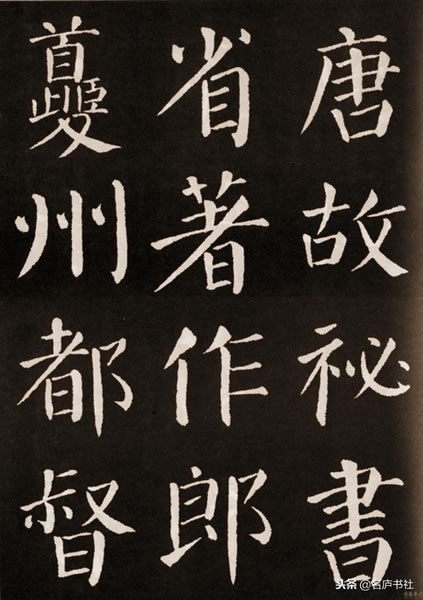 唐故祕書
省著作郎
夔州都督
头条@名庐书社